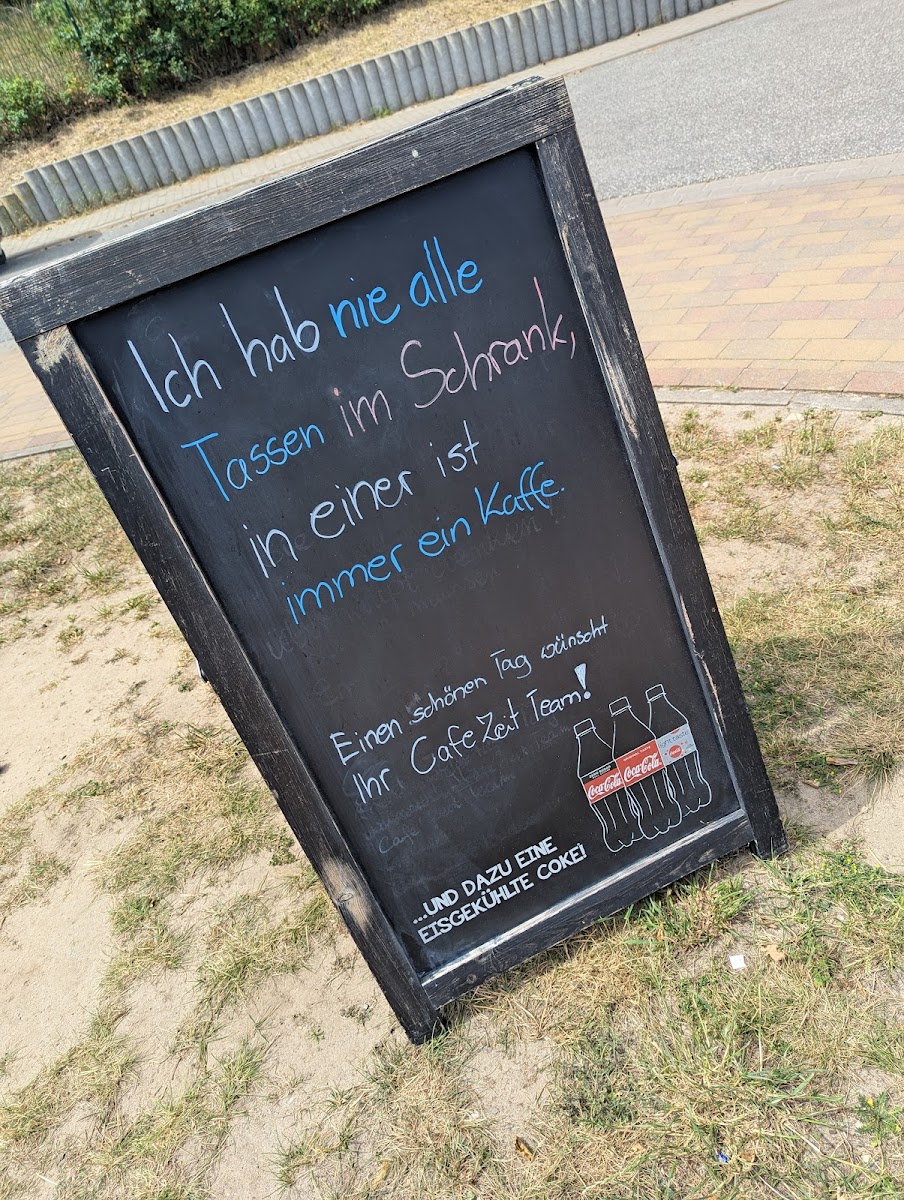 Ich hab nie alle
Tassen im Schrank,
in einer ist
immer ein Kaffe.
Einen schönen Tag wünscht
Ihr Cafe Zeit Team!
Coca-Cola Coca-Cola
...UND DAZU EINE
EISGEKÜHLTE COKE!